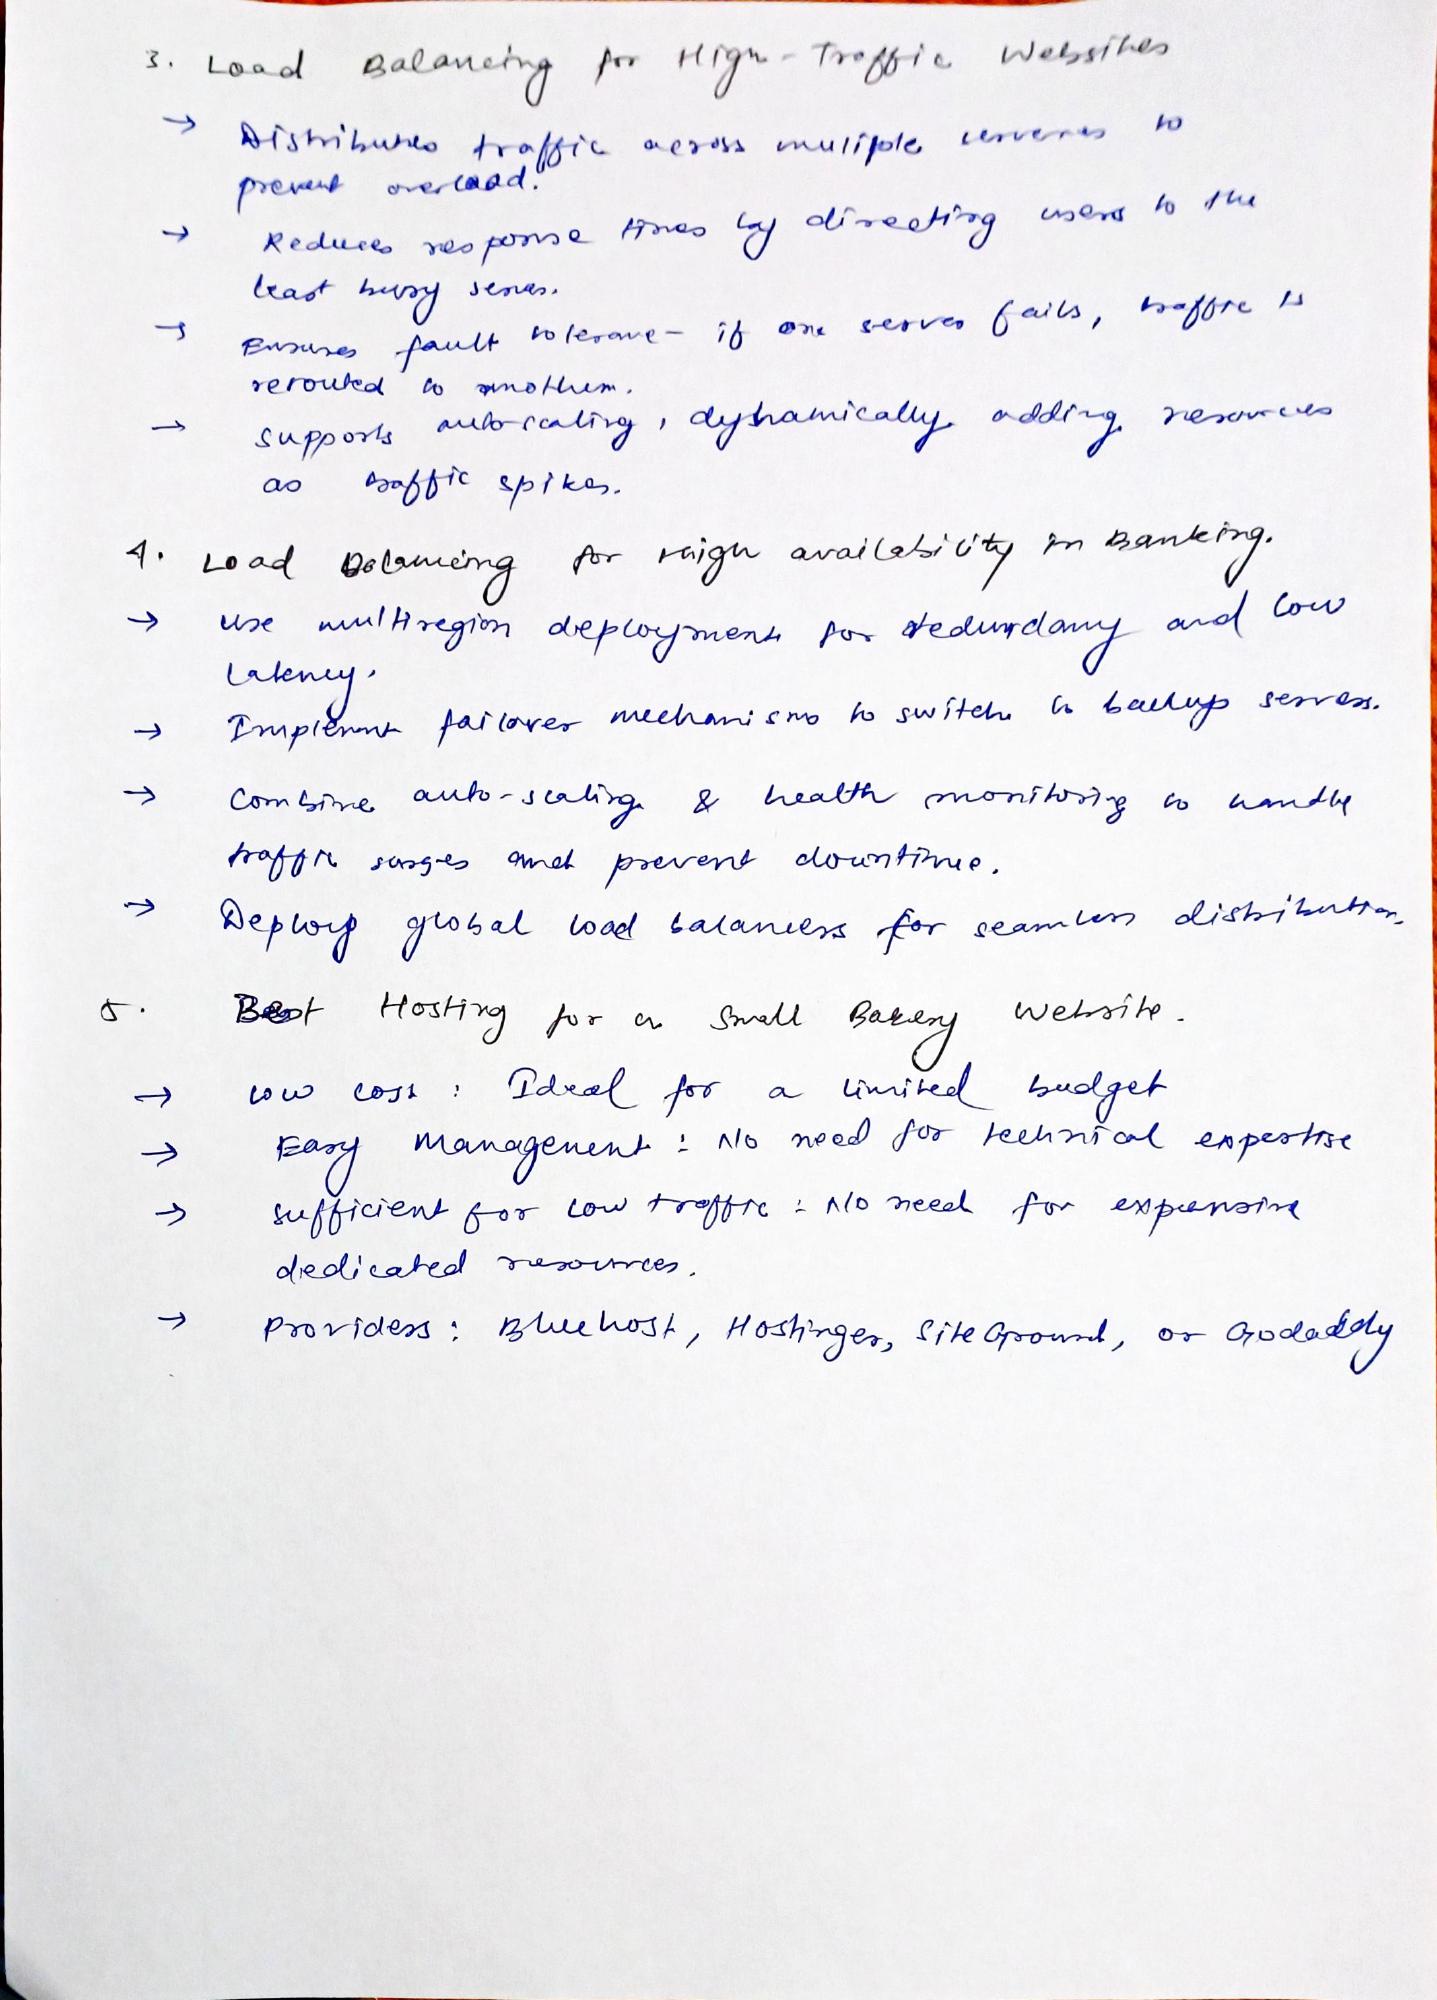 3. Load Balancing for High-Traffic Websites
→ Distributes traffic across muliple serveres to
prevent overload.
→ Reduces response times by directing users to the
least busy server.
→ Ensures fault tolerance - if one server fails, traffic is
rerouted to another.
→ Supports auto-scaling, dynamically adding resources
as traffic spikes.
4. Load Balancing for High availability in Banking.
→ Use multiregion deployments for redundancy and low
latency.
→ Implement failover mechanisms to switch to backup servers.
→ Combine auto-scaling & health monitoring to handle
traffic surges and prevent downtime.
→ Deploy global load balancers for seamless distribution.
5. Best Hosting for a Small Bakery Website.
→ Low cost : Ideal for a limited budget
→ Easy Management : No need for technical expertise
→ Sufficient for low traffic : No need for expensive
dedicated resources.
→ Providers : Bluehost, Hostinger, SiteGround, or Godaddy